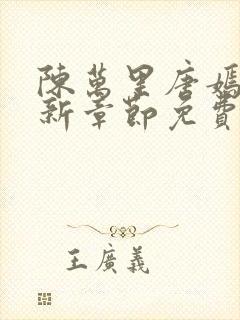 陳萬里唐嫣
新章節免費
王廣義